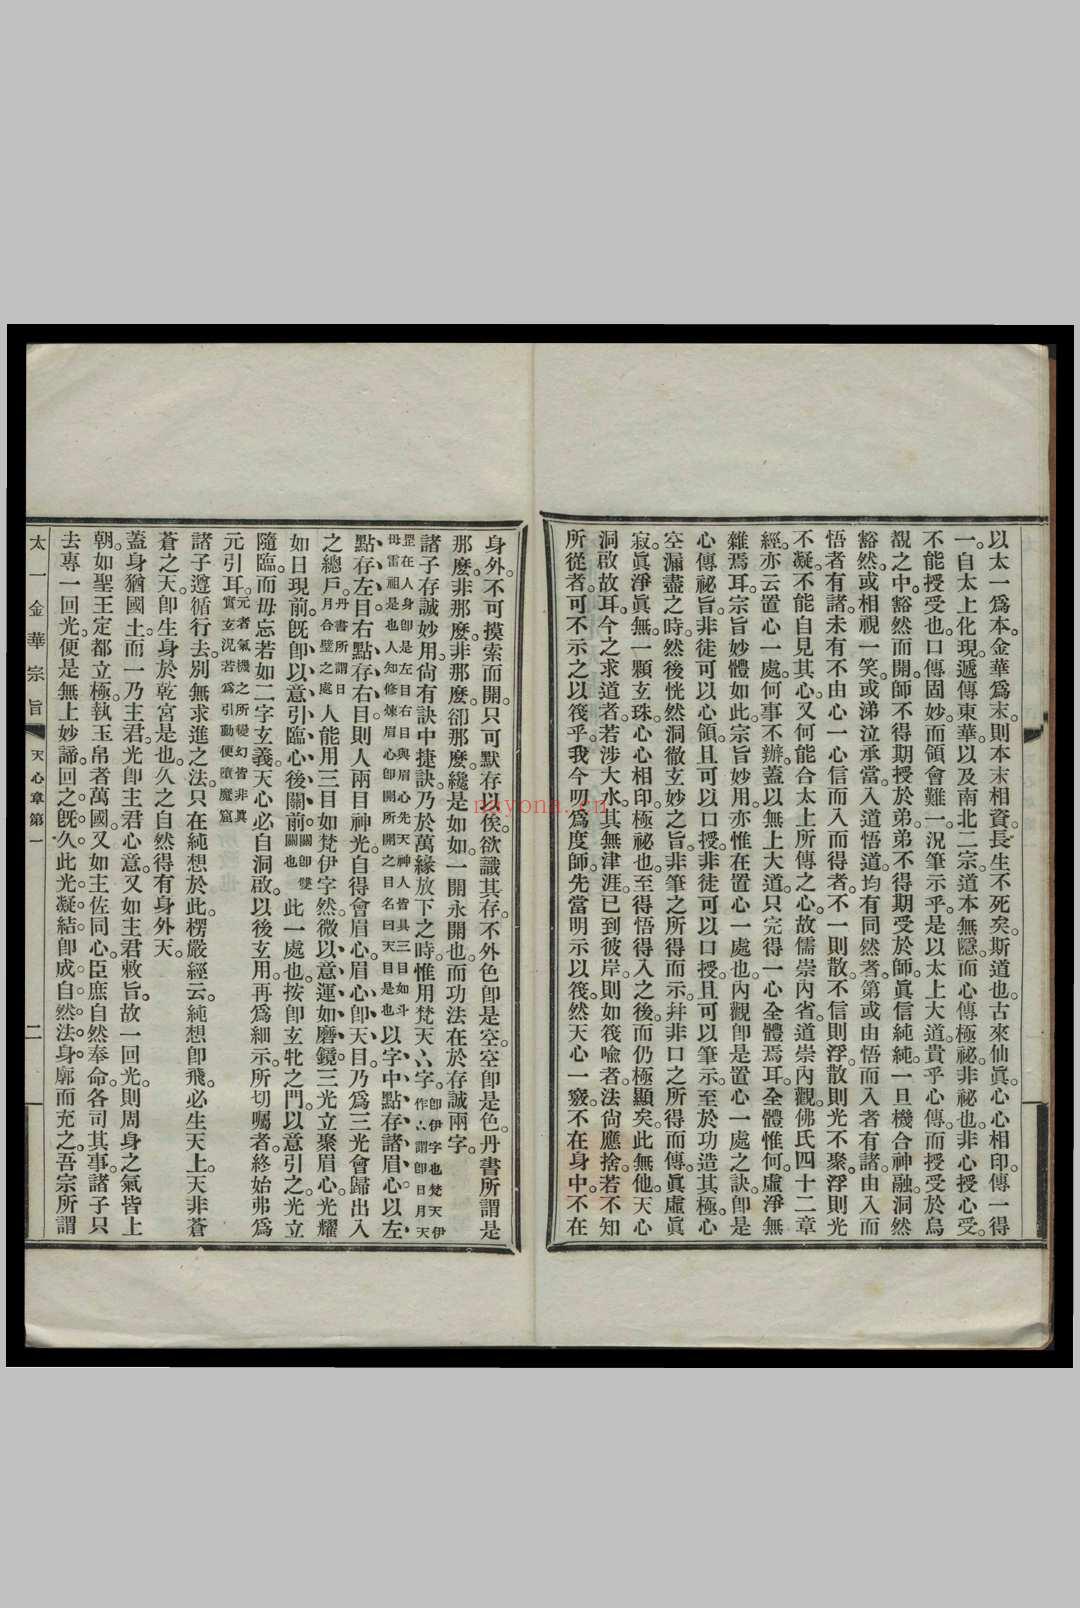 以太一爲本。金華爲末。則本末相資。長生不死矣。斯道也。古來仙眞。心心相印。傳一得
一。自太上化現。遞傳東華。以及南北二宗。道本無隱。而心傳極祕。非祕也。非心授心受。
不能授受也。口傳固妙。而領會難一。況筆示乎。是以太上大道。貴乎心傳。而授受於烏
覩之中。豁然而開。師不得期授於弟。弟不得期受於師。眞信純純。一旦機合神融。洞然
豁然。或相視一笑。或涕泣承當。入道悟道。均有同然者。第或由悟而入者有諸。由入而
悟者有諸。未有不由心一心信而入而得者。不一則散。不信則浮。散則光不聚。浮則光
不凝。不能自見其心。又何能合太上所傳之心。故儒崇內省。道崇內觀。佛氏四十二章
經。亦云置心一處。何事不辦。蓋以無上大道。只完得一心全體焉耳。全體惟何。虛淨無
雜焉耳。宗旨妙體如此。宗旨妙用。亦惟在置心一處也。內觀卽是置心一處之訣。卽是
心傳祕旨。非徒可以心領。且可以口授。非徒可以口授。且可以筆示。至於功造其極。心
空漏盡之時。然後恍然洞徹玄妙之旨。非筆之所得而示。幷非口之所得而傳。眞虛眞
寂。眞淨眞無。一顆玄珠。心心相印。極祕也。至得悟得入之後。而仍極顯矣。此無他。天心
洞啟故耳。今之求道者。若涉大水。其無津涯。已到彼岸。則如筏喻者。法尙應捨。若不知
所從者。可不示之以筏乎。我今叨爲度師。先當明示以筏。然天心一竅。不在身中。不在
身外。不可摸索而開。只可默存以俟。欲識其存。不外色卽是空。空卽是色。丹書所謂是
那麼。非那麼。非那麼。卻那麼。纔是如如。一開永開也。而功法在於存誠兩字。
諸子存誠妙用。尙有訣中捷訣。乃於萬緣放下之時。惟用梵天∴字。卽伊字也梵天伊作∴謂卽日月天
罡在人身卽是左目右目與眉心先天神人皆具三目如斗毋雷祖是也人知修煉眉心卽開所開之目名曰天目是也以字中點存諸眉心。以左
點存左目。右點存右目。則人兩目神光。自得會眉心。眉心卽天目。乃爲三光會歸出入
之總戶。丹書所謂日月合璧之處人能用三目如梵伊字然。微以意運如磨鏡。三光立聚眉心。光耀
如日現前。旣卽以意引臨心後關前。關卽雙關也此一處也。按卽玄牝之門。以意引之。光立
隨臨。而毋忘若如二字玄義。天心必自洞啟。以後玄用。再爲細示。所切囑者。終始弗爲
元引耳。元者氣機之所變幻皆非眞實玄況若爲引動便隨魔窟
諸子遵循行去。別無求進之法。只在純想於此。楞嚴經云。純想卽飛。必生天上。天非蒼
蒼之天。卽生身於乾宮是也。久之自然得有身外天。
蓋身猶國土。而一乃主君。光卽主君心意。又如主君敕旨。故一回光。則周身之氣皆上
朝。如聖王定都立極。執玉帛者萬國。又如主佐同心。臣庶自然奉命。各司其事。諸子只
去專一回光。便是無上妙諦。回之旣久。此光凝結。卽成自然法身。廓而充之。吾宗所謂
太一金華宗旨 天心章第一 二
nayona.cn